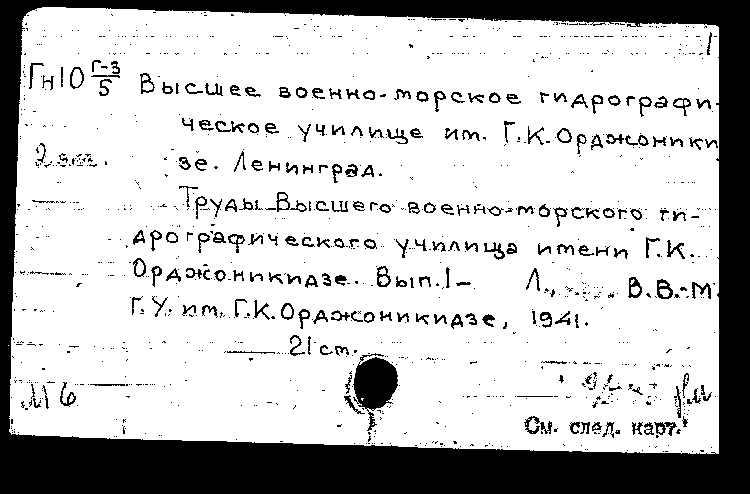 1
Гн10 Г-3/5 Высшее военно-морское гидрографи-
ческое училище им. Г.К. Орджоники
2 экз. зе. Ленинград.
Труды Высшего военно-морского ги-
дрографического училища имени Г.К.
Орджоникидзе. Вып. 1- Л., В.В.-М.
Г.У. им. Г.К. Орджоникидзе, 1941.
21 ст.
М6
См. след. карт.